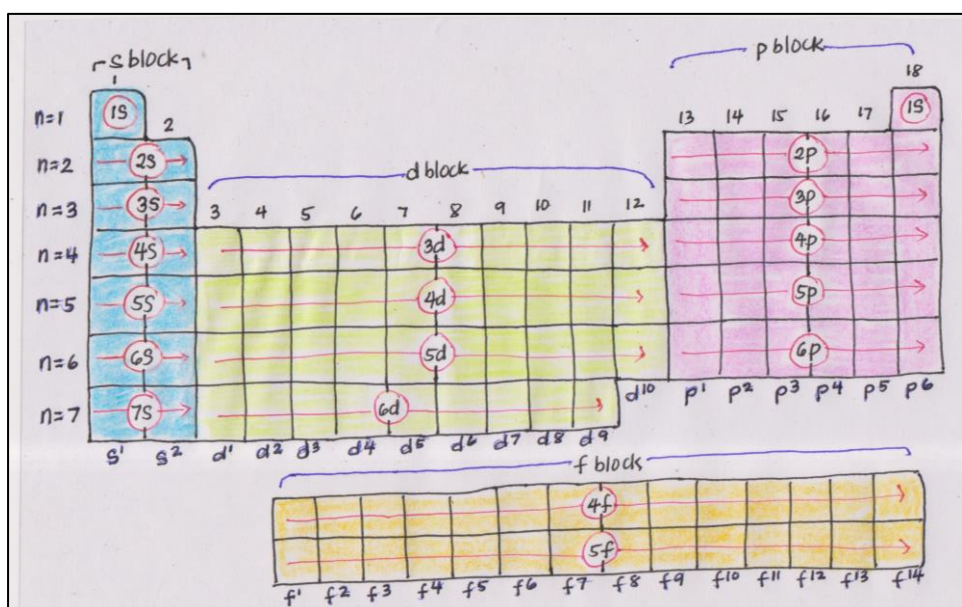 s block
p block
1
18
n=1 1s 2 13 14 15 16 17 1s
n=2 2s 2p
d block
n=3 3s 3 4 5 6 7 8 9 10 11 12 3p
n=4 4s 3d 4p
n=5 5s 4d 5p
n=6 6s 5d 6p
n=7 7s 6d d10 p1 p2 p3 p4 p5 p6
s1 s2 d1 d2 d3 d4 d5 d6 d7 d8 d9
f block
4f
5f
f1 f2 f3 f4 f5 f6 f7 f8 f9 f10 f11 f12 f13 f14